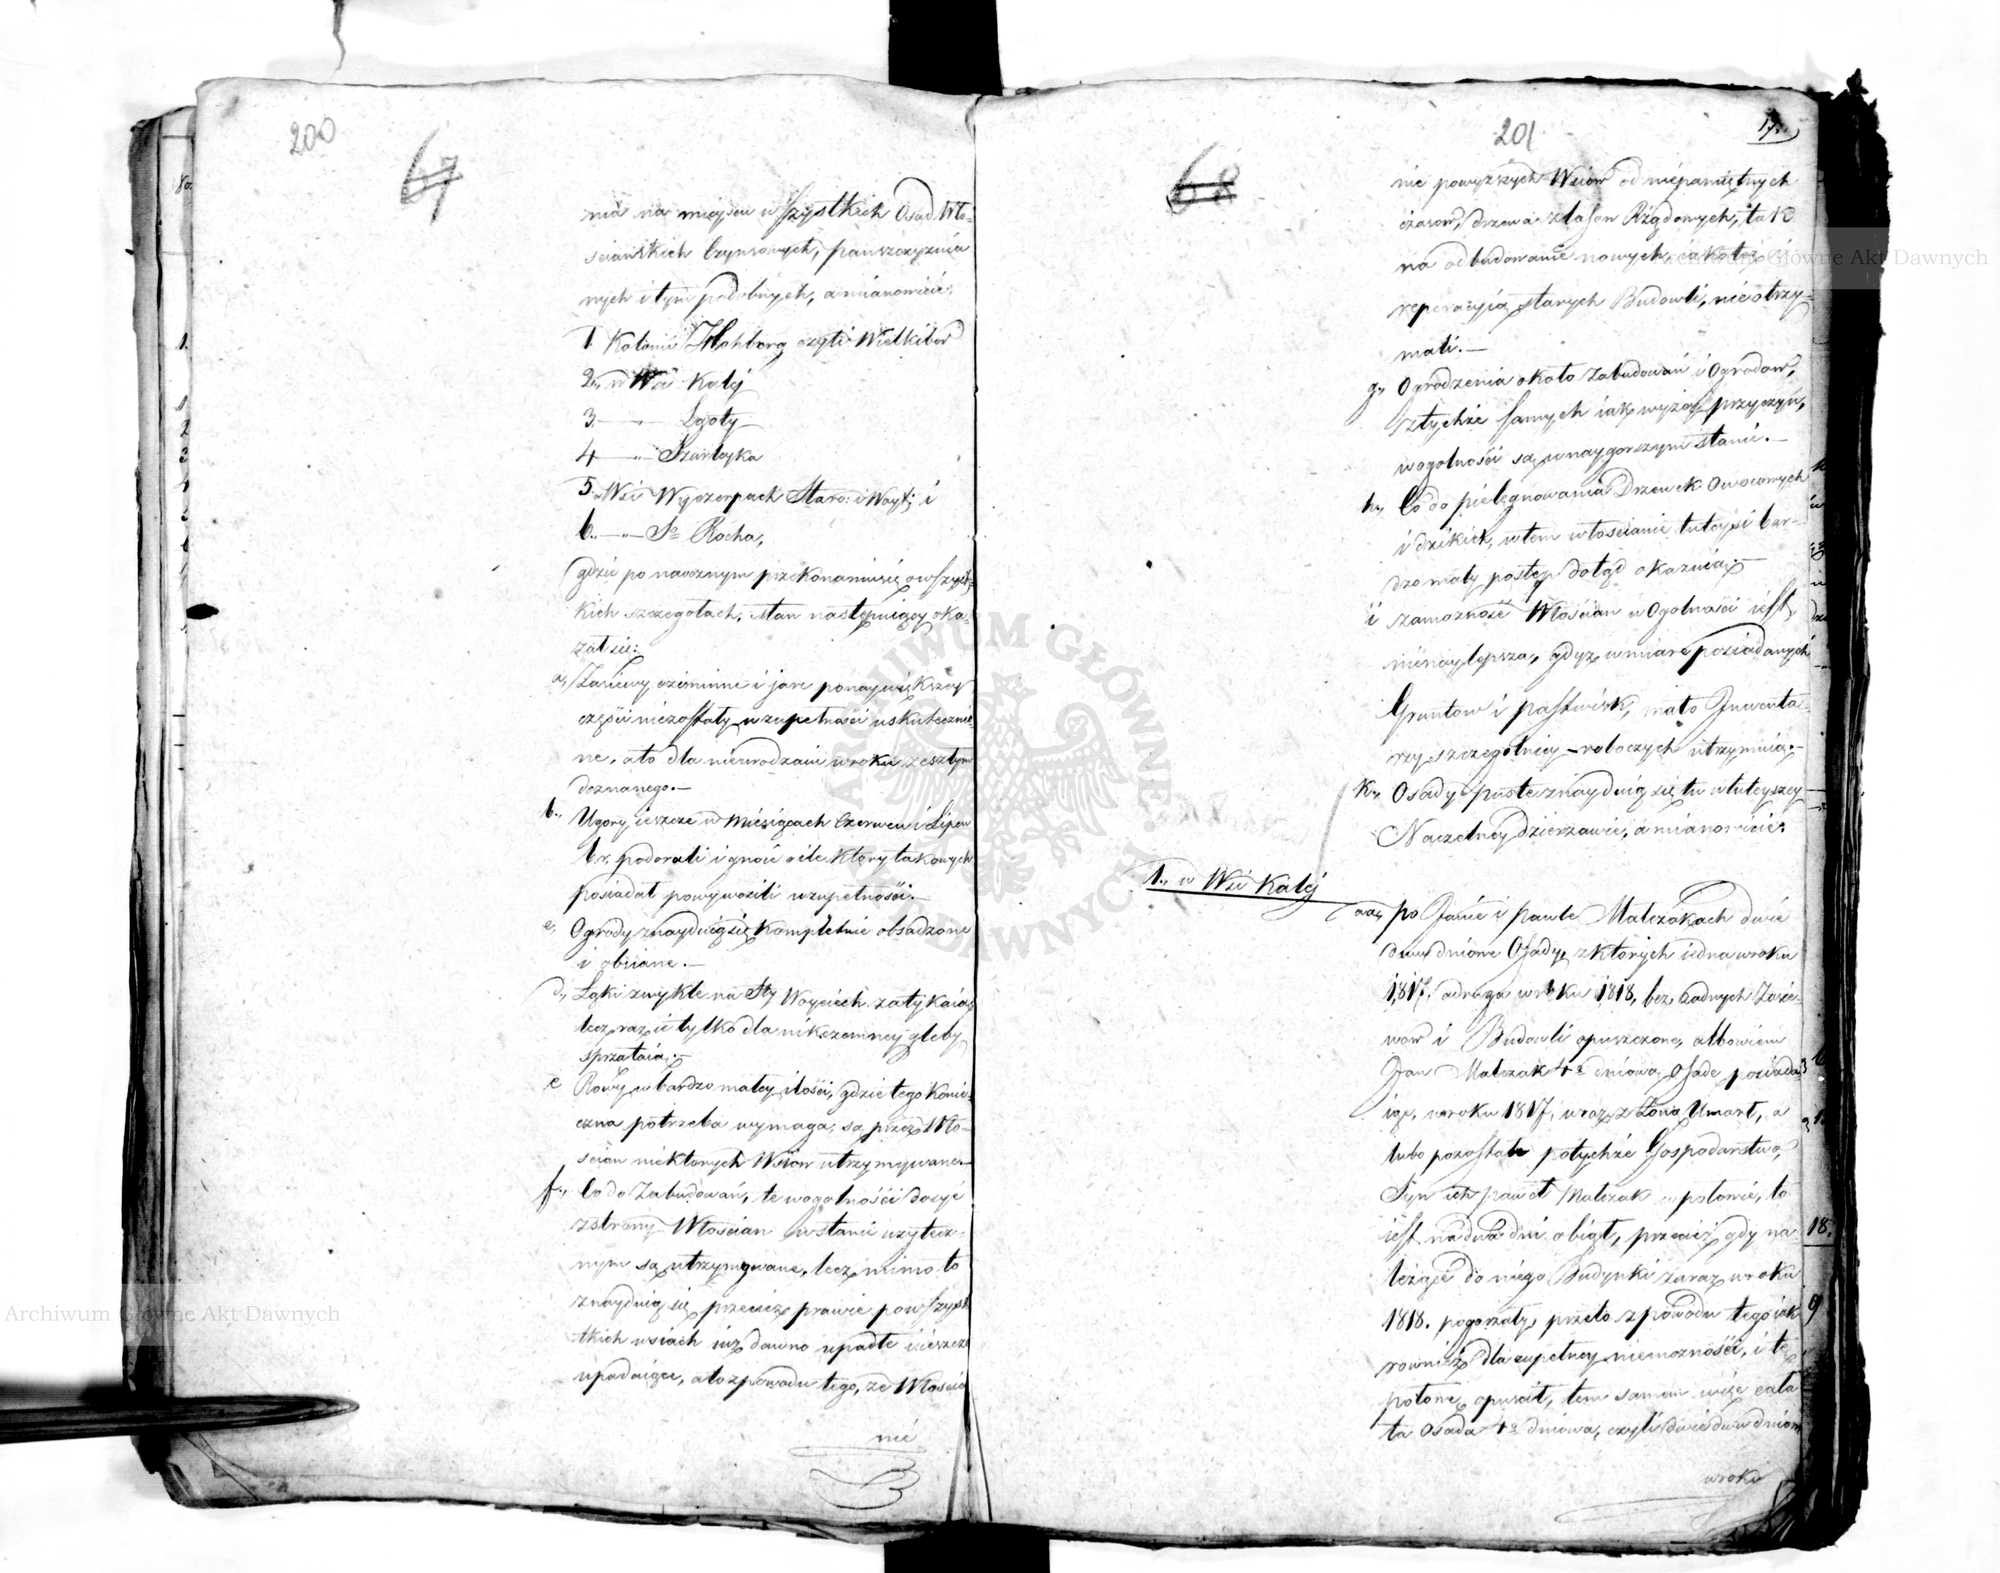 200
67
nia na mieyscu wszystkich Osad Wło-
sciańskich Czynszowych, panszczyznia
nych i tym podobnych, a mianowicie:
1 Kolonii Hohberg czyli Wielkibor
2„ w Wsi Kalej
3 — „ — Lgoty
4 — „ Szarleyka
5 „ Wsi Wyczerpach Staro: i Woyt: i
6„ — „ — St Rocha,
gdzie po naocznym przekonaniu się o wszyst-
kich szczegołach, stan następuiący oka-
zał sie:
a, Zasiewy oziminne i jare po naywiększey
części niezostały w zupełności uskutecznio-
ne, a to dla nieurodzaiu w roku zeszłym
doznanego.—
b„ Ugory ieszcze w Miesiącach Czerwcu i Lipcu
b.r. podorali i gnoie o ile ktory takowych
posiadał powywozili w zupełności.—
c, Ogrody znayduią się kompletnie obsadzone
i obsiane.—
d„ Łąki zwykle na Sty Woyciech zatykaią
lecz raz ie tylko dla nikczemney gleby
sprzątaią.—
e Rowy w bardzo małey ilości, gdzie tego konie-
czna potrzeba wymaga, są przez Wło-
scian niektorych Wsiow utrzymywane.—
f„ Co do Zabudowań, te w ogolności dosyć
z strony Włoscian w stanie uzytecz-
nym są utrzymywane, lecz mimo to
znayduią się przecież prawie po wszyst
kich wsiach iuż dawno upadłe i ieszcze
upadaiące, a to z powodu tego, ze Włoscia
nie
68
201
17.
nie powyższych Wsiow od niepamiętnych
czasow, drzewa z lasow Rządowych, tak
na odbudowanie nowych, iako też
reperacyią starych Budowli, nie otrzy-
mali.—
g„ Ogrodzenia około Zabudowań i Ogrodow,
z tychże samych iak wyżey przyczyn,
w ogolności są w naygorszym stanie.—
h„ Co do pielęgnowania Drzewek Owocowych
i dzikich, w tem włoscianie tuteysi bar-
dzo mały postęp dotąd okazuią.—
i zamozność Włoscian w Ogolności iest
nienaylepsza, gdyż w miarę posiadanych
Gruntow i pastwisk, mało Inwenta-
rzy szczegolniey — roboczych utrzymuią.—
k„ Osady puste znayduią się tu w tuteyszey
Naczelney dzierzawie, a mianowicie:
1„ w Wsi Kalej
aa, po Janie i Pawle Malczakach dwie
dwu dniowe Osady, z ktorych iedna w roku
1817. a druga w roku 1818, bez żadnych Zasie-
wow i Budowli opuszczone, albowiem
Jan Malczak 4o dniową Osadę posiada-
iąc, w roku 1817, wraz z Żoną Umarł, a
lubo pozostałe po tychże Gospodarstwo,
Syn ich Paweł Malczak w połowie, to
iest na dwa dni obiął, przecież gdy na
leżące do niego Budynki zaraz w roku
1818. pogorzały, przeto z powodu tego iak
rownież dla zupełney niemożności, i tę
połowę opuscił, tem samem więc cała
ta Osada 4o dniowa, czyli dwie dwu dniowe
w roku